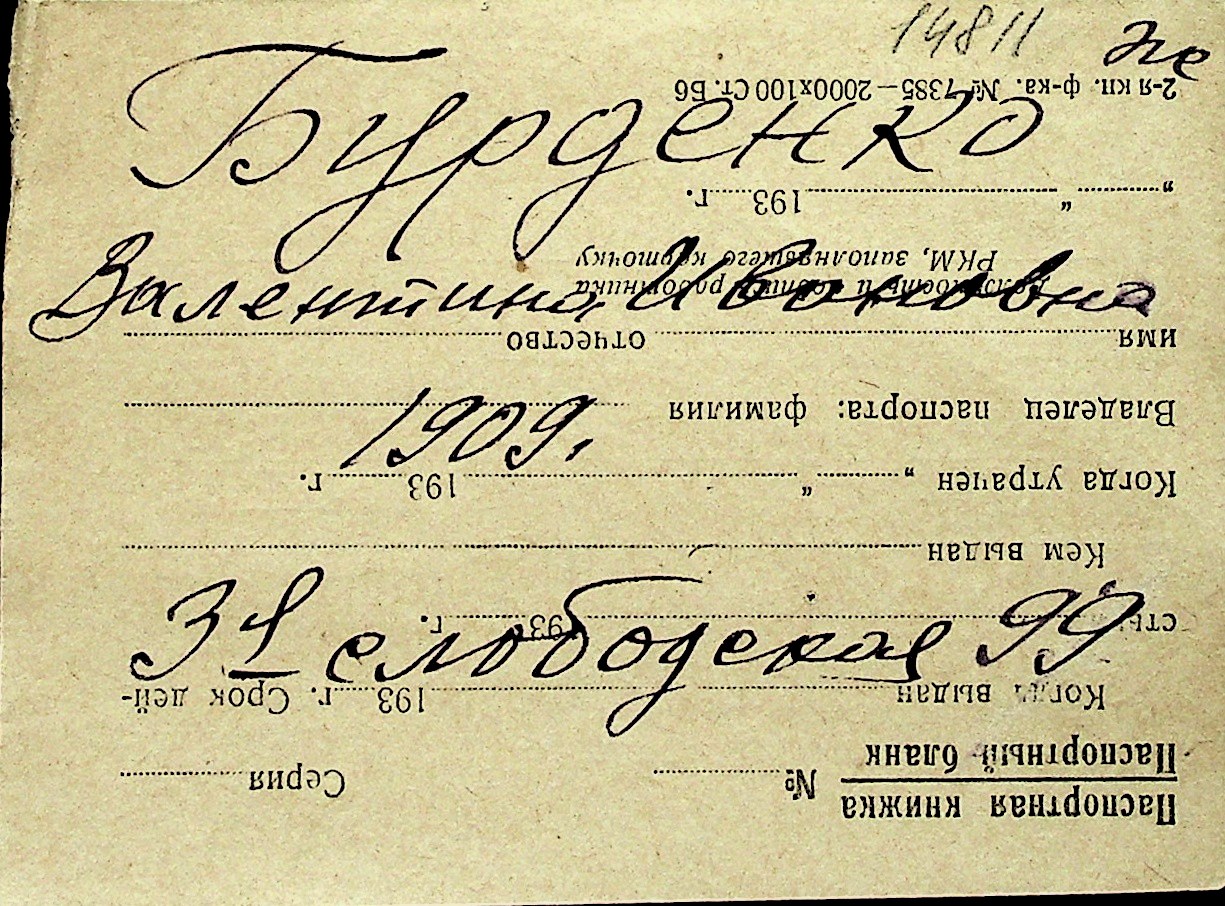 14811
Бурденко
Валентина Ивановна
1909.
3я слободская 99
Паспортная книжка
Паспортный бланк
№ Серия
Когда выдан 193 г. Срок дей-
193 г.
Кем выдан
Когда утрачен „ “ 193 г.
Владелец паспорта: фамилия
имя отчество
РКМ, заполнявшего карточку
„ “ 193 г.
2-я кп. ф-ка. № 7385—2000х100 Ст. Б6